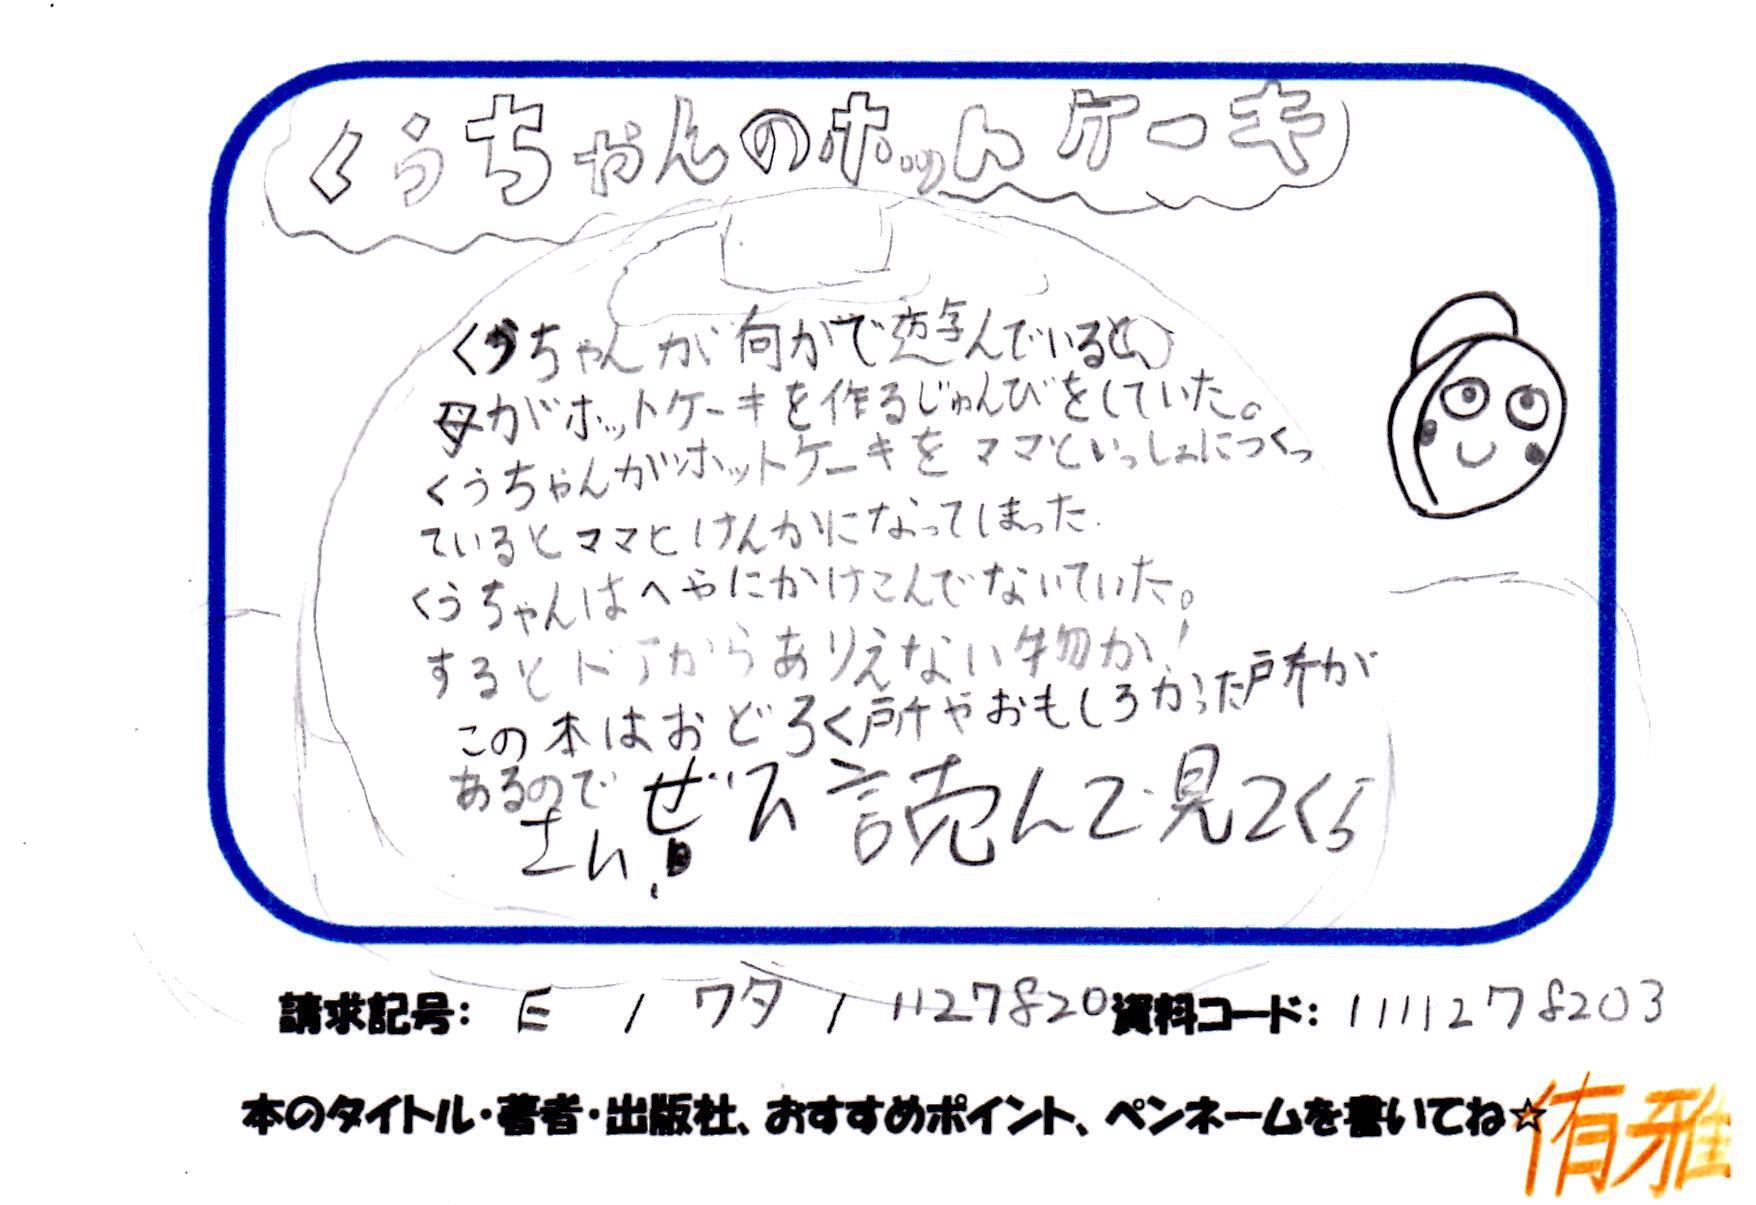 くうちゃんのホットケーキ
くうちゃんが何かで遊んでいると、
母がホットケーキを作るじゅんびをしていた。
くうちゃんがホットケーキをママといっしょにつくっ
ているとママとけんかになってしまった.
くうちゃんはへやにかけこんでないていた。
するとドアからありえない物が!
この本はおどろく所やおもしろかった所が
あるのでぜひ読んで見てくだ
さい!
請求記号: E / ワタ / 1127820 資料コード: 1111278203
本のタイトル・著者・出版社、おすすめポイント、ペンネームを書いてね☆
侑雅